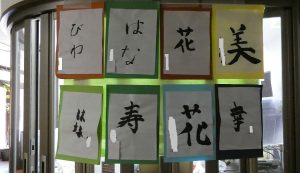 びわ
はな
花
美
寿
花
幸